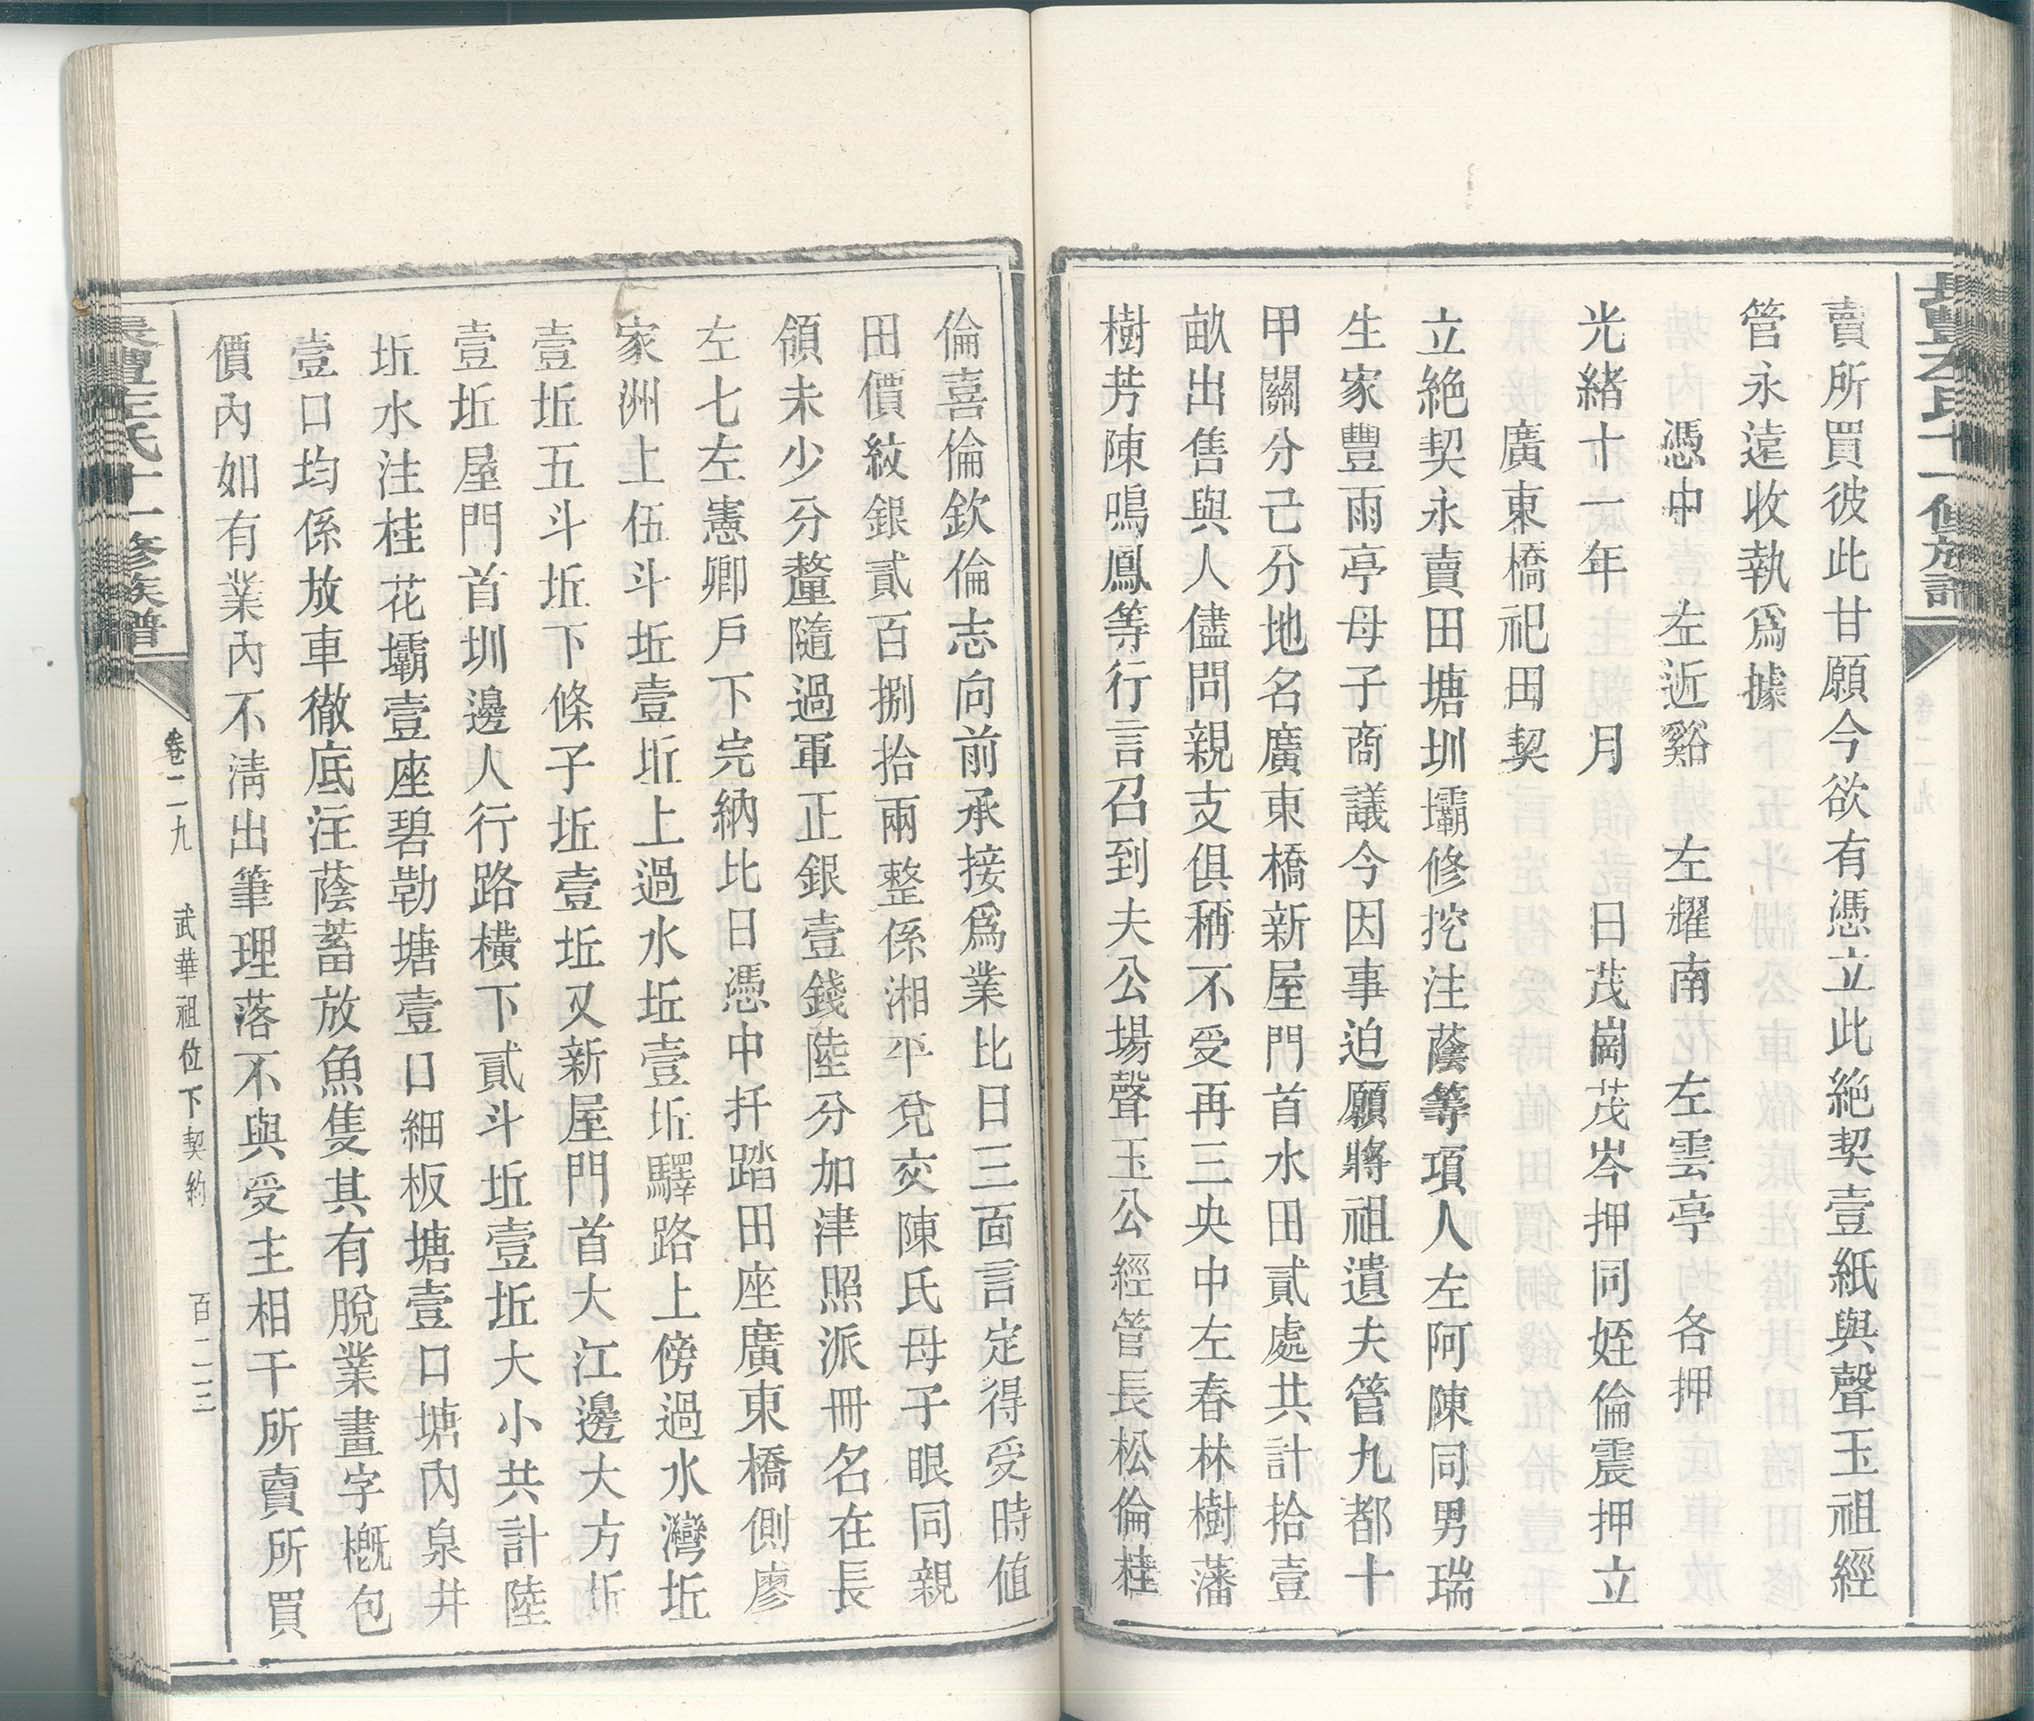 賣所買彼此甘願今欲有憑立此絕契壹紙與聲玉祖經
管永遠收執爲據
憑中　左近谿　左耀南　左雲亭　各押
光緒十一年　月　日茂崗茂岑押同姪倫震押立
廣東橋祀田契
立絕契永賣田塘圳壩修挖注蔭等項人左阿陳同男瑞
生家豐雨亭母子商議今因事迫願將祖遺夫管九都十
甲關分己分地名廣東橋新屋門首水田貳處共計拾壹
畝出售與人儘問親支俱稱不受再三央中左春林樹藩
樹芳陳鳴鳳等行言召到夫公場聲玉公經管長松倫桂
倫喜倫欽倫志向前承接爲業比日三面言定得受時值
田價紋銀貳百捌拾兩整係湘平兌交陳氏母子眼同親
領未少分釐隨過軍正銀壹錢陸分加津照派冊名在長
左七左憲卿戶下完納比日憑中扦踏田座廣東橋側廖
家洲上伍斗坵壹坵上過水坵壹坵驛路上傍過水灣坵
壹坵五斗坵下條子坵壹坵又新屋門首大江邊大方坵
壹坵屋門首圳邊人行路橫下貳斗坵壹坵大小共計陸
坵水注桂花壩壹座碧勤塘壹口細板塘壹口塘內泉井
壹口均係放車徹底注蔭蓄放魚隻其有脫業畫字概包
價內如有業內不淸出筆理落不與受主相干所賣所買
左氏十一修族譜
卷二九　武華祖位下契約　百二三